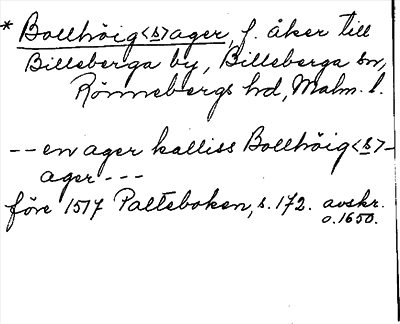 * Bollhöig<s>ager, f. åker till
Billeberga by, Billeberga sn,
Rönnebergs hd, Malm. l.
-- en ager kalliss Bollhöig<s>-
ager ---
före 1517 Palteboken, s. 172. avskr.
o. 1650.